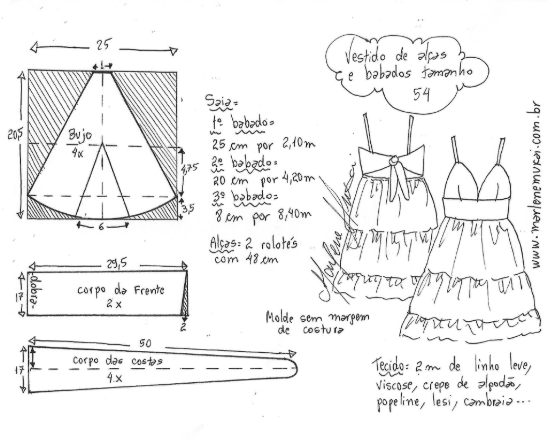 25
1
20,5
Bujo
4x
4,75
3,5
6
Saia=
1º babado=
25 cm por 2,10m
2º babado=
20 cm por 4,20m
3º babado=
8 cm por 8,40m
Alças: 2 rolotês
com 48 cm
Vestido de alças
e babados tamanho
54
www.marlenemukai.com.br
Marlene Mukai
29,5
17
dobra
corpo da Frente
2x
2
Molde sem margem
de costura
50
17
corpo das costas
4x
Tecido= 2 m de linho leve,
viscose, crepe de algodão,
popeline, lesi, cambraia...